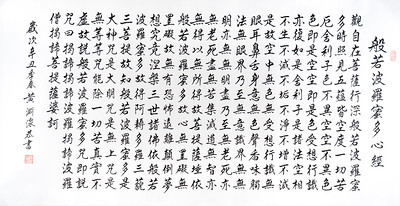 般若波羅蜜多心經
觀自在菩薩行深般若波羅蜜
多時照見五蘊皆空度一切苦
厄舍利子色不異空空不異色
色即是空空即是色受想行識
亦復如是舍利子是諸法空相
不生不滅不垢不淨不增不減
是故空中無色無受想行識無
眼耳鼻舌身意無色聲香味觸
法無眼界乃至無意識界無無
明亦無無明盡乃至無老死亦
無老死盡無苦集滅道無智亦
無得以無所得故菩提薩埵依
般若波羅蜜多故心無罣礙無
罣礙故無有恐怖遠離顛倒夢
想究竟涅槃三世諸佛依般若
波羅蜜多故得阿耨多羅三藐
三菩提故知般若波羅蜜多是
大神咒是大明咒是無上咒是
無等等咒能除一切苦真實不
虛故說般若波羅蜜多咒即說
咒曰揭諦揭諦波羅揭諦波羅
僧揭諦菩提薩婆訶
歲次辛丑季春黃恭書